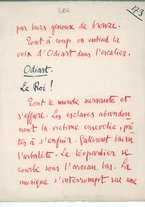 173
par leurs queues de bronze.
Tout à coup on entend la
voix d'Odiart dans l'escalier.
Odiart.
Le Roi !
Tout le monde remonte et
s'efface. Les esclaves abandon
nent la victime enserclée, prê
tes à s'enfuir. Gallerent baisse
l'arbalète. Le léopardier se
courbe sous l'arceau bas. La
musique s'interrompt sur une